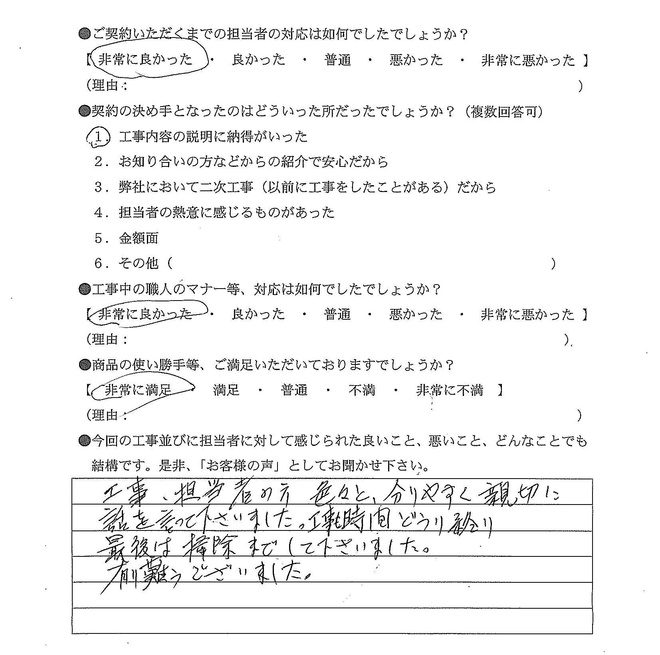 ●ご契約いただくまでの担当者の対応は如何でしたでしょうか？
【 非常に良かった ・ 良かった ・ 普通 ・ 悪かった ・ 非常に悪かった 】
（理由： ）
●契約の決め手となったのはどういった所だったでしょうか？（複数回答可）
1．工事内容の説明に納得がいった
2．お知り合いの方などからの紹介で安心だから
3．弊社において二次工事（以前に工事をしたことがある）だから
4．担当者の熱意に感じるものがあった
5．金額面
6．その他（ ）
●工事中の職人のマナー等、対応は如何でしたでしょうか？
【 非常に良かった ・ 良かった ・ 普通 ・ 悪かった ・ 非常に悪かった 】
（理由： ）
●商品の使い勝手等、ご満足いただいておりますでしょうか？
【 非常に満足 ・ 満足 ・ 普通 ・ 不満 ・ 非常に不満 】
（理由： ）
●今回の工事並びに担当者に対して感じられた良いこと、悪いこと、どんなことでも
結構です。是非、「お客様の声」としてお聞かせ下さい。
工事、担当者の方 色々と、分りやすく 親切に
話を言って下さいました。工事時間 どうり
最後は 掃除 までして下さいました。
有難うございました。